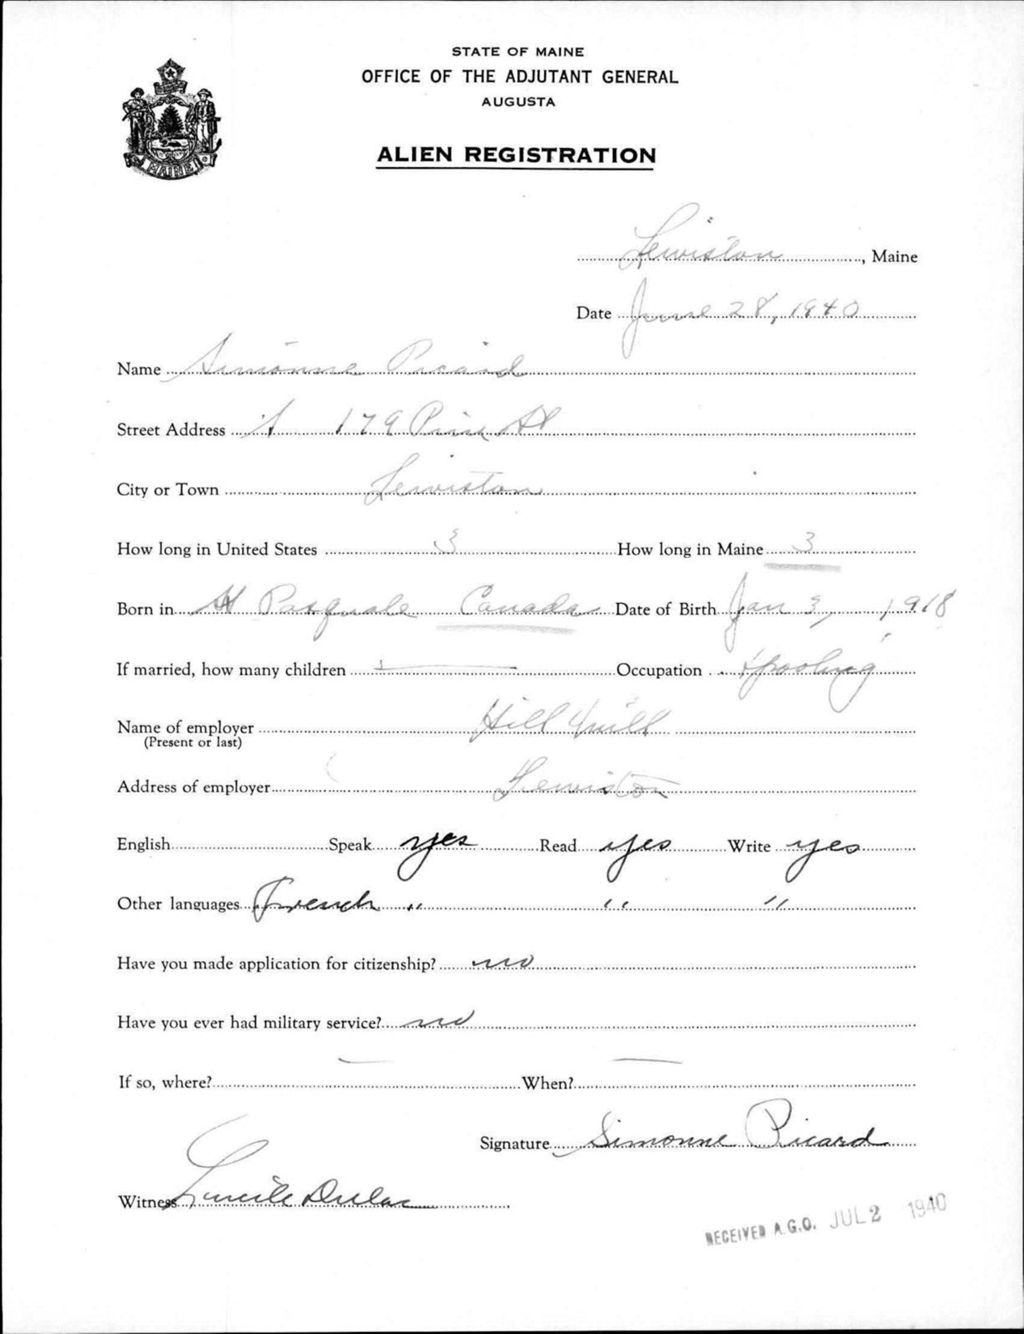 STATE OF MAINE
OFFICE OF THE ADJUTANT GENERAL
AUGUSTA
ALIEN REGISTRATION
MAINE
Lewiston, Maine
Date June 28, 1940
Name Simonne Picard
Street Address 179 Pine St
City or Town Lewiston
How long in United States 3 How long in Maine 3
Born in St Pasquale Canada Date of Birth Jan 3, 1918
If married, how many children Occupation Spooling
Name of employer Hill Mill
(Present or last)
Address of employer Lewiston
English Speak yes Read yes Write yes
Other languages French " " "
Have you made application for citizenship? no
Have you ever had military service? no
If so, where? — When? —
Signature Simonne Picard
Witness Lucile Dulac
RECEIVED A.G.O. JUL 2 1940